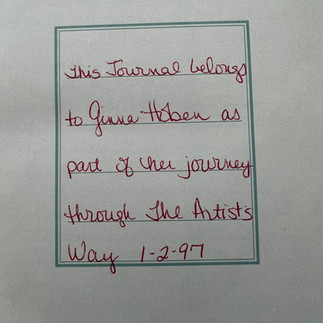 This Journal belongs
to Ginna Hoben as
part of her journey
through The Artist's
Way 1-2-97